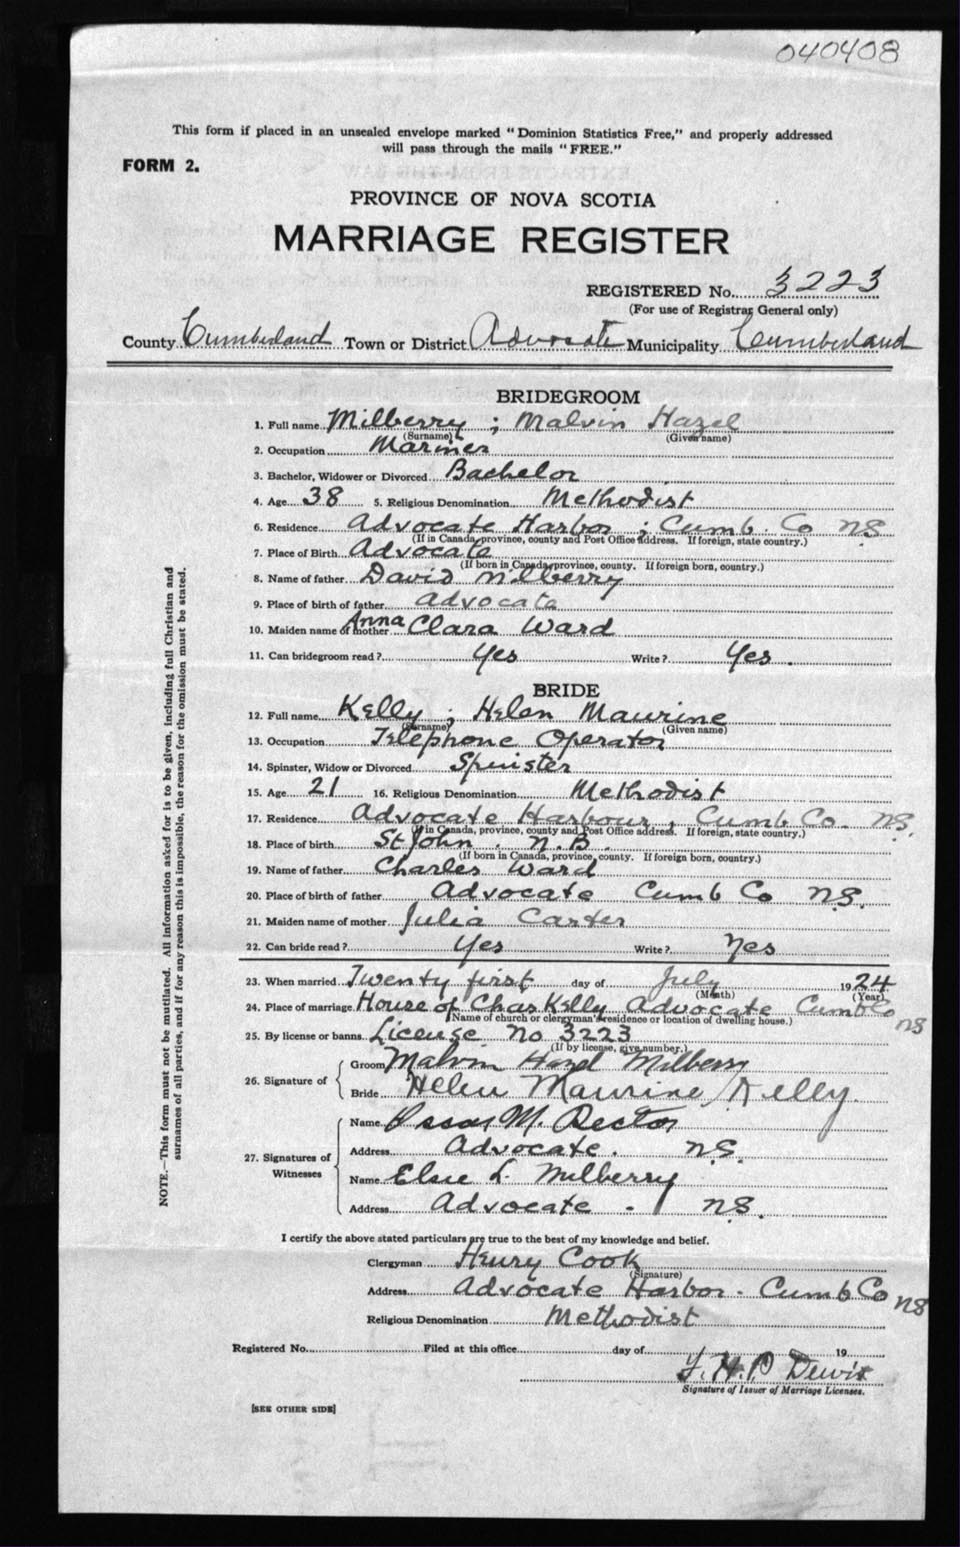 040408
This form if placed in an unsealed envelope marked "Dominion Statistics Free," and properly addressed
will pass through the mails "FREE."
FORM 2.
PROVINCE OF NOVA SCOTIA
MARRIAGE REGISTER
REGISTERED No. 3223
(For use of Registrar General only)
County Cumberland Town or District Advocate Municipality Cumberland
BRIDEGROOM
1. Full name Milberry ; Malvin Hazel
(Surname) (Given name)
2. Occupation Mariner
3. Bachelor, Widower or Divorced Bachelor
4. Age 38 5. Religious Denomination Methodist
6. Residence Advocate Harbor ; Cumb. Co NS
(If in Canada, province, county and Post Office address. If foreign, state country.)
7. Place of Birth Advocate
(If born in Canada, province, county. If foreign born, country.)
8. Name of father David Milberry
9. Place of birth of father Advocate
10. Maiden name of mother Anna Clara Ward
11. Can bridegroom read? Yes Write? Yes.
BRIDE
12. Full name Kelly ; Helen Maurine
(Surname) (Given name)
13. Occupation Telephone Operator
14. Spinster, Widow or Divorced Spinster
15. Age 21 16. Religious Denomination Methodist
17. Residence Advocate Harbour, Cumb Co. NS.
(If in Canada, province, county and Post Office address. If foreign, state country.)
18. Place of birth St John. N.B.
(If born in Canada, province, county. If foreign born, country.)
19. Name of father Charles Ward
20. Place of birth of father Advocate Cumb Co NS.
21. Maiden name of mother Julia Carter
22. Can bride read? Yes Write? Yes
23. When married Twenty first day of July 1924
(Month) (Year)
24. Place of marriage House of Chas Kelly Advocate Cumb Co NS
(Name of church or clergyman's residence or location of dwelling house.)
25. By license or banns License No 3223
(If by license, give number.)
26. Signature of
Groom Malvin Hazel Milberry
Bride Helen Maurine Kelly.
27. Signatures of Witnesses
Name M. Rector
Address Advocate. NS.
Name Elsie L. Milberry
Address Advocate - NS.
I certify the above stated particulars are true to the best of my knowledge and belief.
Clergyman Henry Cook
(Signature)
Address Advocate Harbor. Cumb Co NS
Religious Denomination Methodist
Registered No. Filed at this office day of 19
Dewis
Signature of Issuer of Marriage Licenses.
[SEE OTHER SIDE]
NOTE.—This form must not be mutilated. All information asked for is to be given, including full Christian and
surnames of all parties, and if for any reason this is impossible, the reason for the omission must be stated.